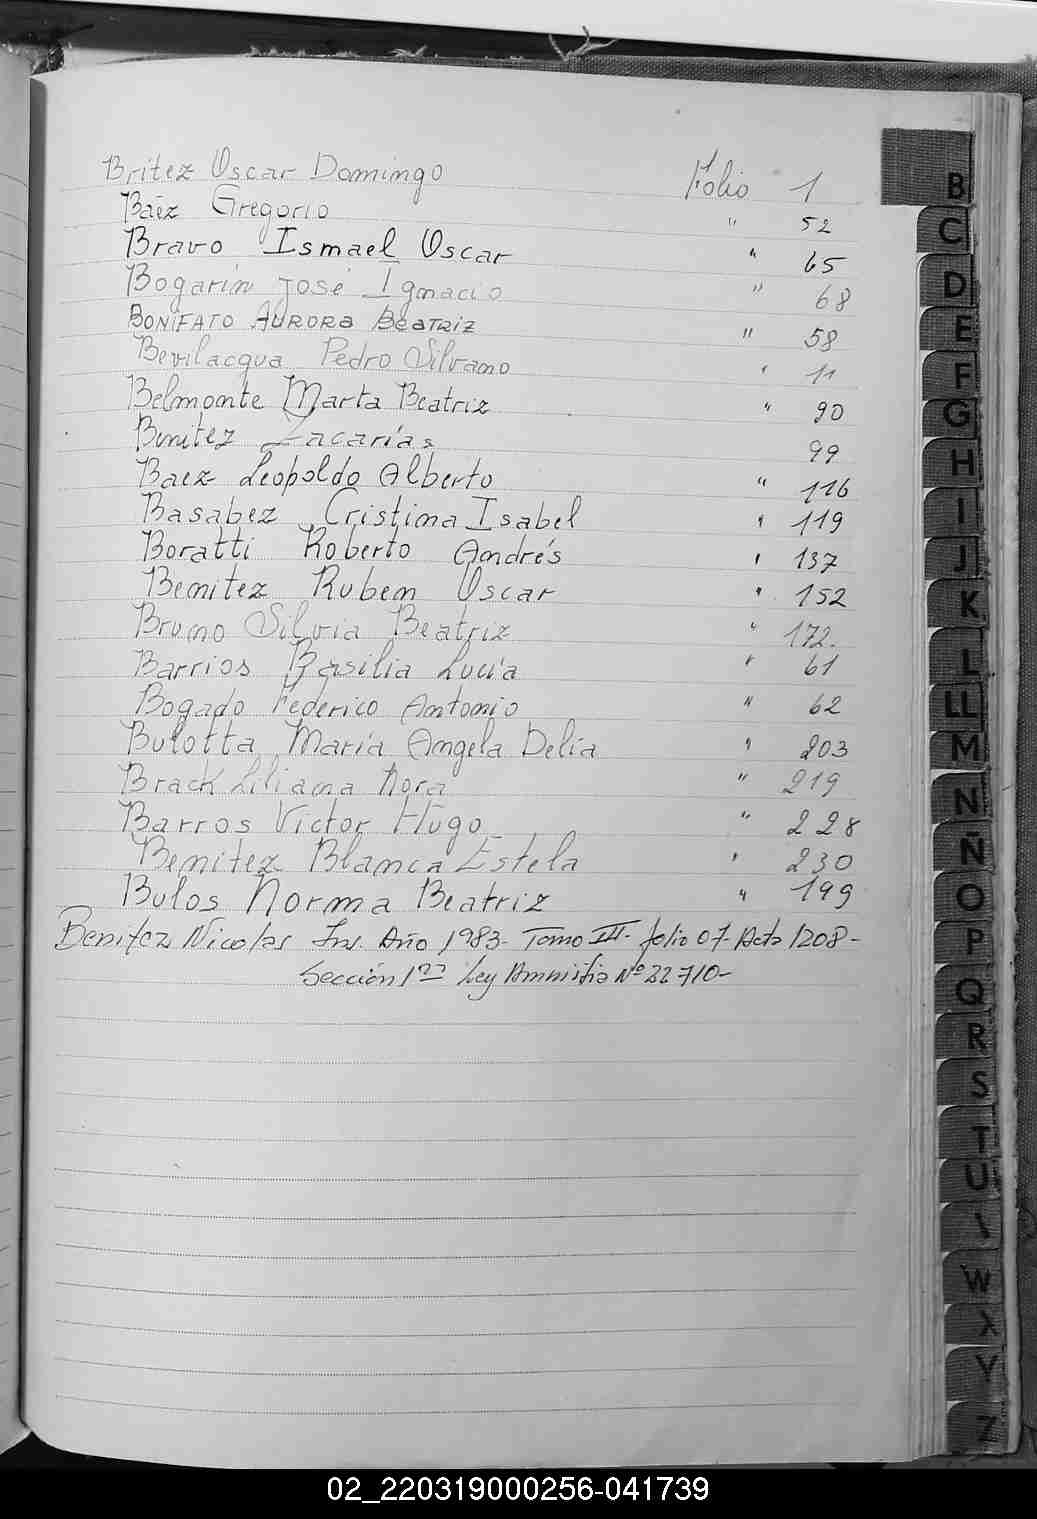 Britez Oscar Domingo Folio 1
Báez Gregorio " 52
Bravo Ismael Oscar " 65
Bogarín José Ignacio " 68
BONIFATO AURORA BEATRIZ " 58
Bevilacqua Pedro Silvano " 11
Belmonte Marta Beatriz " 90
Benitez Zacarías 99
Baez Leopoldo Alberto " 116
Basabez Cristina Isabel " 119
Boratti Roberto Andrés " 137
Benitez Ruben Oscar " 152
Bruno Silvia Beatriz " 172.
Barrios Basilia Lucía " 61
Bogado Federico Antonio " 62
Bulotta María Angela Delia " 203
Brack Liliana Nora " 219
Barros Victor Hugo " 228
Benitez Blanca Estela " 230
Bulos Norma Beatriz " 199
Benitez Nicolas Ins. Año 1983- Tomo III- folio 07- Acta 1208-
Sección 1ra Ley Amnistia Nº 22710-
B
C
D
E
F
G
H
I
J
K
L
LL
M
N
Ñ
O
P
Q
R
S
T
U
W
X
Y
Z
02_220319000256-041739